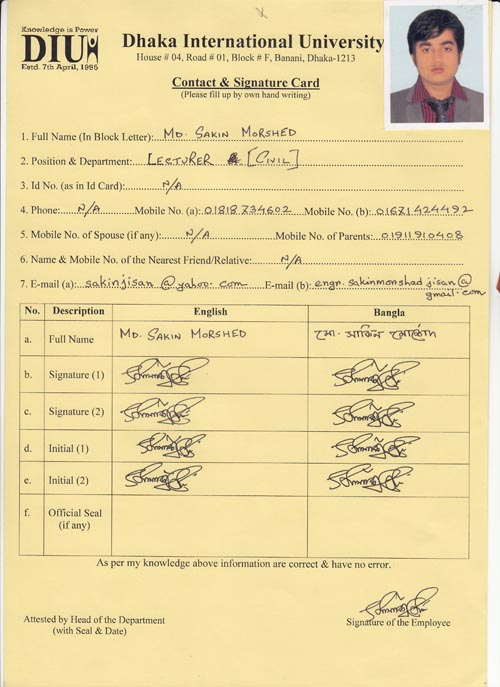 Knowledge is Power
DIU
Estd. 7th April, 1995
Dhaka International University
House # 04, Road # 01, Block # F, Banani, Dhaka-1213
Contact & Signature Card
(Please fill up by own hand writing)
1. Full Name (In Block Letter): MD. SAKIN MORSHED
2. Position & Department: LECTURER [CIVIL]
3. Id No. (as in Id Card): N/A
4. Phone: N/A Mobile No. (a): 01818734602 Mobile No. (b): 01671424492
5. Mobile No. of Spouse (if any): N/A Mobile No. of Parents: 01911910408
6. Name & Mobile No. of the Nearest Friend/Relative: N/A
7. E-mail (a): sakinjisan@yahoo.com E-mail (b): engr.sakinmorshedjisan@
gmail.com
No. Description English Bangla
a. Full Name MD. SAKIN MORSHED মো. সাকিন মোর্শেদ
b. Signature (1)
c. Signature (2)
d. Initial (1)
e. Initial (2)
f. Official Seal
(if any)
As per my knowledge above information are correct & have no error.
Attested by Head of the Department
(with Seal & Date)
Signature of the Employee